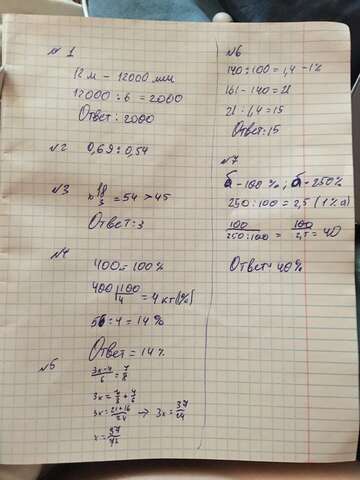 № 1
12 м – 12000 мм
12000 : 6 = 2000
Ответ: 2000
№2 0,69 : 0,54
№3 = 54 > 45
Ответ: 3
№4
400 = 100%
= 4 кг (1%)
56 : 4 = 14%
Ответ = 14%
№5
3x-4/6 = 7/8
3x = 7/8 + 4/6
3x = 21+16/24 → 3x = 37/24
x = 37/72
№6
140 : 100 = 1,4 – 1%
161 – 140 = 21
21 : 1,4 = 15
Ответ: 15
№7
– 100%; – 250%
250 : 100 = 2,5 (1% а)
100/250:100 = 100/2,5 = 40
Ответ = 40%